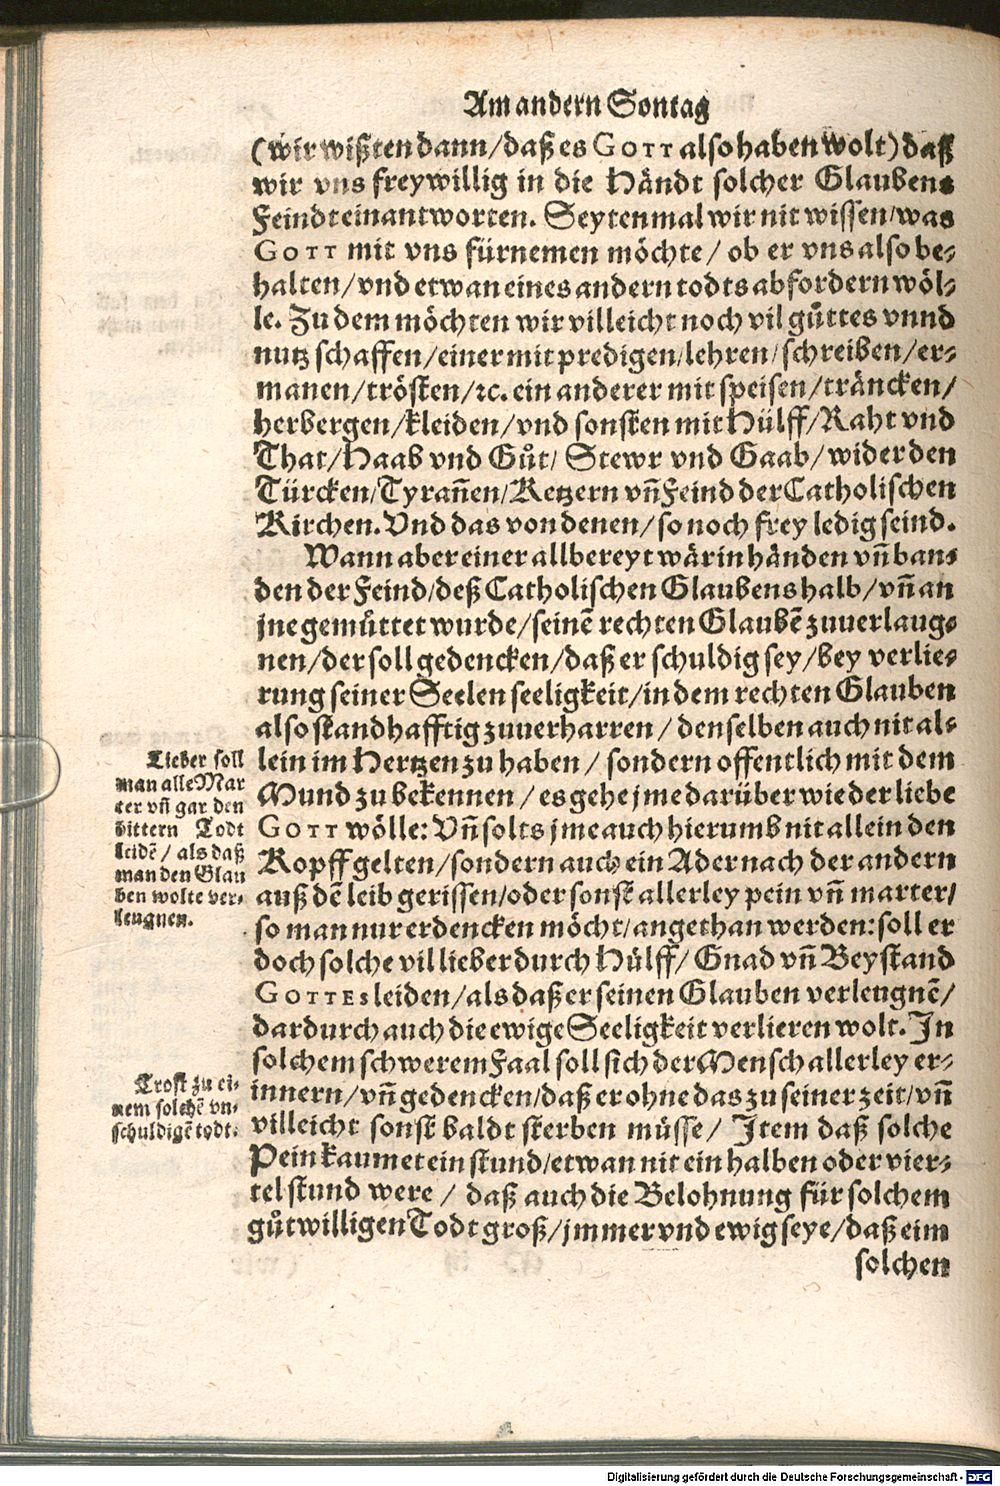 Am andern Sontag
(wir wißten dann/daß es GOTT also haben wolt) daß
wir vns freywillig in die Händt solcher Glaubens
Feindt einantworten. Seytenmal wir nit wissen/was
GOTT mit vns fürnemen möchte / ob er vns also be-
halten/vnd etwan eines andern todts abfordern wöl-
le. Zu dem möchten wir villeicht noch vil gůttes vnnd
nutz schaffen/einer mit predigen/lehren/schreiben/er-
manen/trösten/ꝛc. ein anderer mit speisen/träncken/
herbergen/kleiden/vnd sonsten mit Hülff/Raht vnd
That/Haab vnd Gůt/ Stewr vnd Gaab/wider den
Türcken/Tyrañen/Ketzern vñ Feind der Catholischen
Kirchen. Vnd das von denen/so noch frey ledig seind.
Wann aber einer allbereyt wär in händen vñ ban-
den der Feind/deß Catholischen Glaubens halb/vñ an
jne gemůttet wurde/seinẽ rechten Glaubẽ zuuerlaug-
nen/der soll gedencken/daß er schuldig sey/bey verlie-
rung seiner Seelen seeligkeit/in dem rechten Glauben
also standhafftig zuuerharren / denselben auch nit al-
lein im Hertzen zu haben / sondern offentlich mit dem
Mund zu bekennen / es gehe jme darüber wie der liebe
GOTT wölle: Vñ solts jme auch hierumb nit allein den
Kopff gelten/sondern auch ein Ader nach der andern
auß dẽ leib gerissen/oder sonst allerley pein vñ marter/
so man nur erdencken möcht/angethan werden: soll er
doch solche vil lieber durch Hülff/ Gnad vñ Beystand
GOTTES leiden/als daß er seinen Glauben verleugnẽ/
dardurch auch die ewige Seeligkeit verlieren wolt. In
solchem schwerem Faal soll sich der Mensch allerley er-
innern/vñ gedencken/daß er ohne das zu seiner zeit/vñ
villeicht sonst baldt sterben müsse/ Item daß solche
Pein kaumet ein stund/etwan nit ein halben oder vier-
tel stund were / daß auch die Belohnung für solchem
gůtwilligen Todt groß/jmmer vnd ewig seye/daß eim
solchen
Lieber soll
man alle Mar
ter vñ gar den
bittern Todt
leidẽ / als daß
man den Glau
ben wolte ver-
leugnen.
Trost zu ei-
nem solchẽ vn-
schuldigẽ todt.
Digitalisierung gefördert durch die Deutsche Forschungsgemeinschaft - DFG